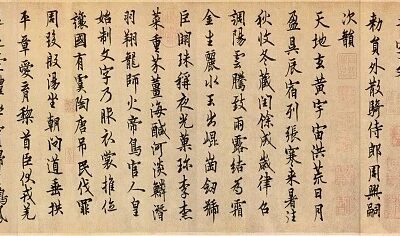 敕員外散騎侍郎周興嗣
次韻
天地玄黃宇宙洪荒日月
盈昃辰宿列張寒來暑往
秋收冬藏閏餘成歲律召
調陽雲騰致雨露結為霜
金生麗水玉出崑崗劍號
巨闕珠稱夜光菓珍李柰
菜重芥薑海鹹河淡鱗潛
羽翔龍師火帝鳥官人皇
始制文字乃服衣裳推位
讓國有虞陶唐吊民伐罪
周發殷湯坐朝問道垂拱
平章愛育黎首臣伏戎羌